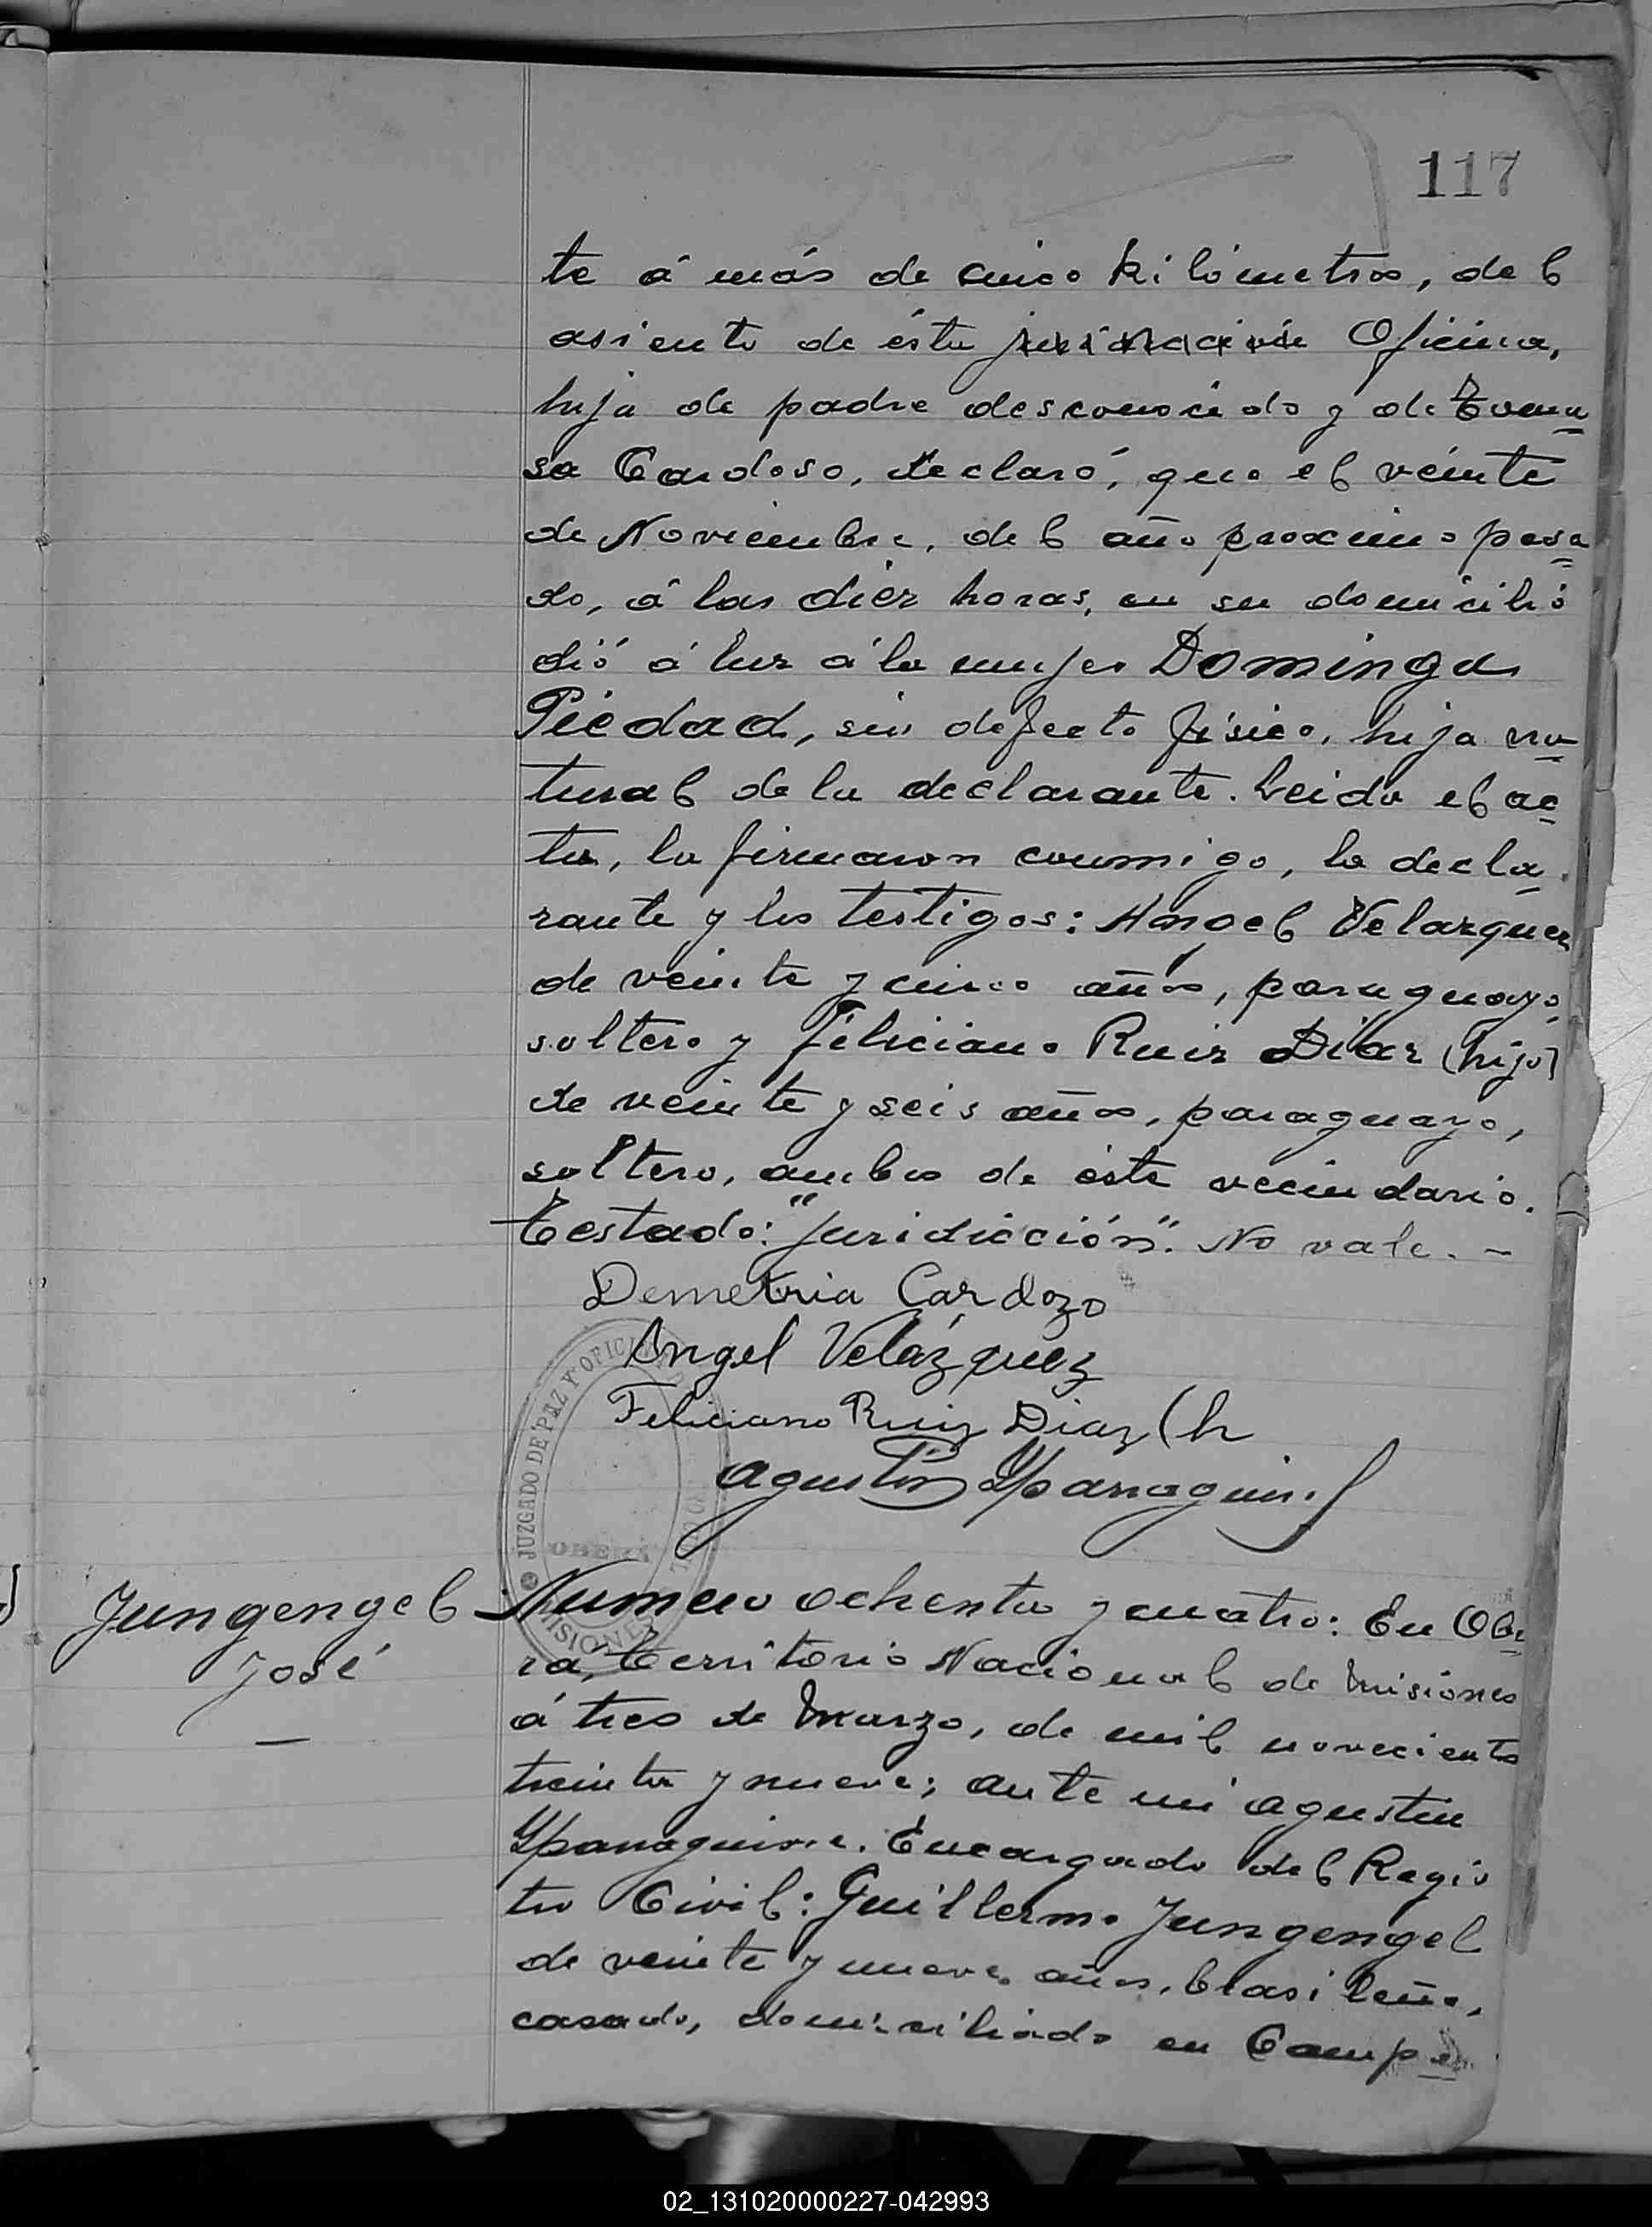 117
te á más de cinco kilómetros, del
asiento de ésta juridicción Oficina,
hija de padre desconocido y de Toma-
sa Cardoso, declaró, que el veinte
de Noviembre, del año proximo pasa-
do, á las diez horas, en su domicilio
dió á luz á la mujer Dominga
Piedad, sin defecto físico, hija na-
tural de la declarante. Leida el ac-
ta, la firmaron conmigo, la decla-
rante y los testigos: Angel Velazquez
de veinte y cinco años, paraguayo,
soltero y Feliciano Ruiz Diaz (hijo)
de veinte y seis años, paraguayo,
soltero, ambos de éste vecindario.
Testado: "juridicción". No vale. -
Demetria Cardozo
Angel Velázquez
Feliciano Ruiz Diaz (h
Agustin
JUZGADO DE PAZ Y OFICI
OBERA
MISIONES
Jungengel
José
Numero ochenta y cuatro: En Obe-
rá, Territorio Nacional de Misiones
á tres de Marzo, de mil novecientos
treinta y nueve; ante mi Agustin
Encargado del Regis
tro Civil: Guillermo Jungengel
de veinte y nueve años, brasileño,
casado, domiciliado en Campo
02_131020000227-042993